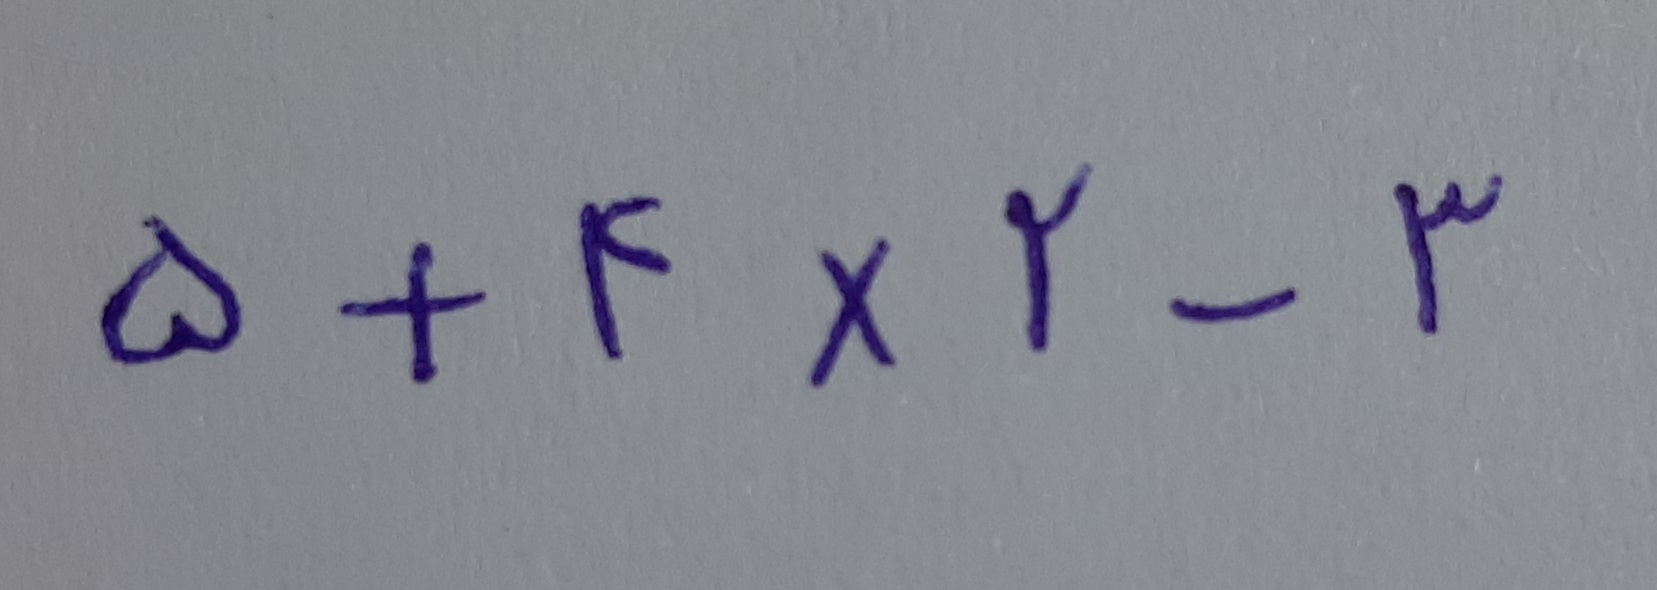 ۵ + ۴ × ۲ - ۳